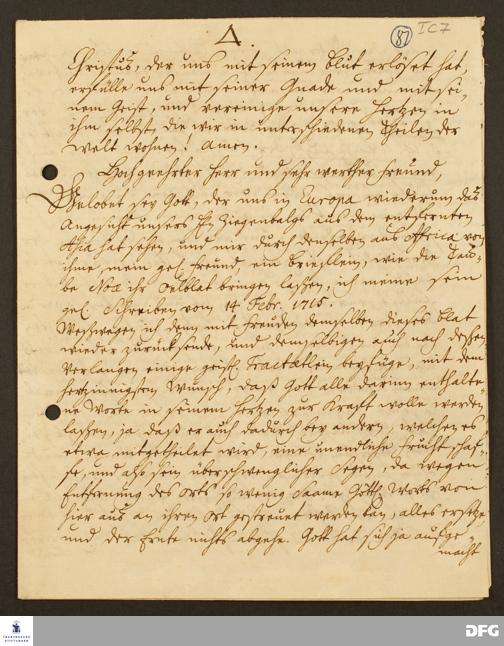 Δ.
(87) I C 7
Christus, der uns mit seinem Blut erlöset hat,
erfülle uns mit seiner Gnade und mit sei-
nem Geist, und vereinige unsere Hertzen in
ihm selbst, die wir in unterschiedenen Theilen der
Welt wohnen! Amen.
Hochgeehrter Herr und sehr werther Freund,
Gelobet sey Gott, der uns in Europa wiederum das
Angesicht unsers Hn Ziegenbalgs aus dem entfernten
Asia hat sehen, und mir durch denselben aus Africa von
ihme, mein gel. Freund, ein Briefflein, wie die Tau-
be Noä ihr Oelblat bringen laßen, ich meine sein
gel. Schreiben vom 14 Febr. 1715.
Weßwegen ich denn mit Freuden demselben dieses Blat
wieder zurücksende, und demselbigen auch nach deßen
Verlangen einige geistl. Tractätlein beyfüge, mit dem
hertzinnigsten Wunsch, daß Gott alle darinn enthalte-
ne Worte in seinem Hertzen zur Krafft wolle werden
laßen, ja daß er auch dadurch bey andern, welchen es
etwa mitgetheilet wird, eine unendliche Frucht schaf-
fe, und also sein überschwenglicher Segen, da wegen
Entfernung des Orts so wenig Saame Göttl. Worts von
hier aus an ihren Ort gestreuet werden kan, alles ersetze,
und der Ernte nichts abgehe. Gott hat sich ja aufge-
macht
FRANCKESCHE STIFTUNGEN
DFG